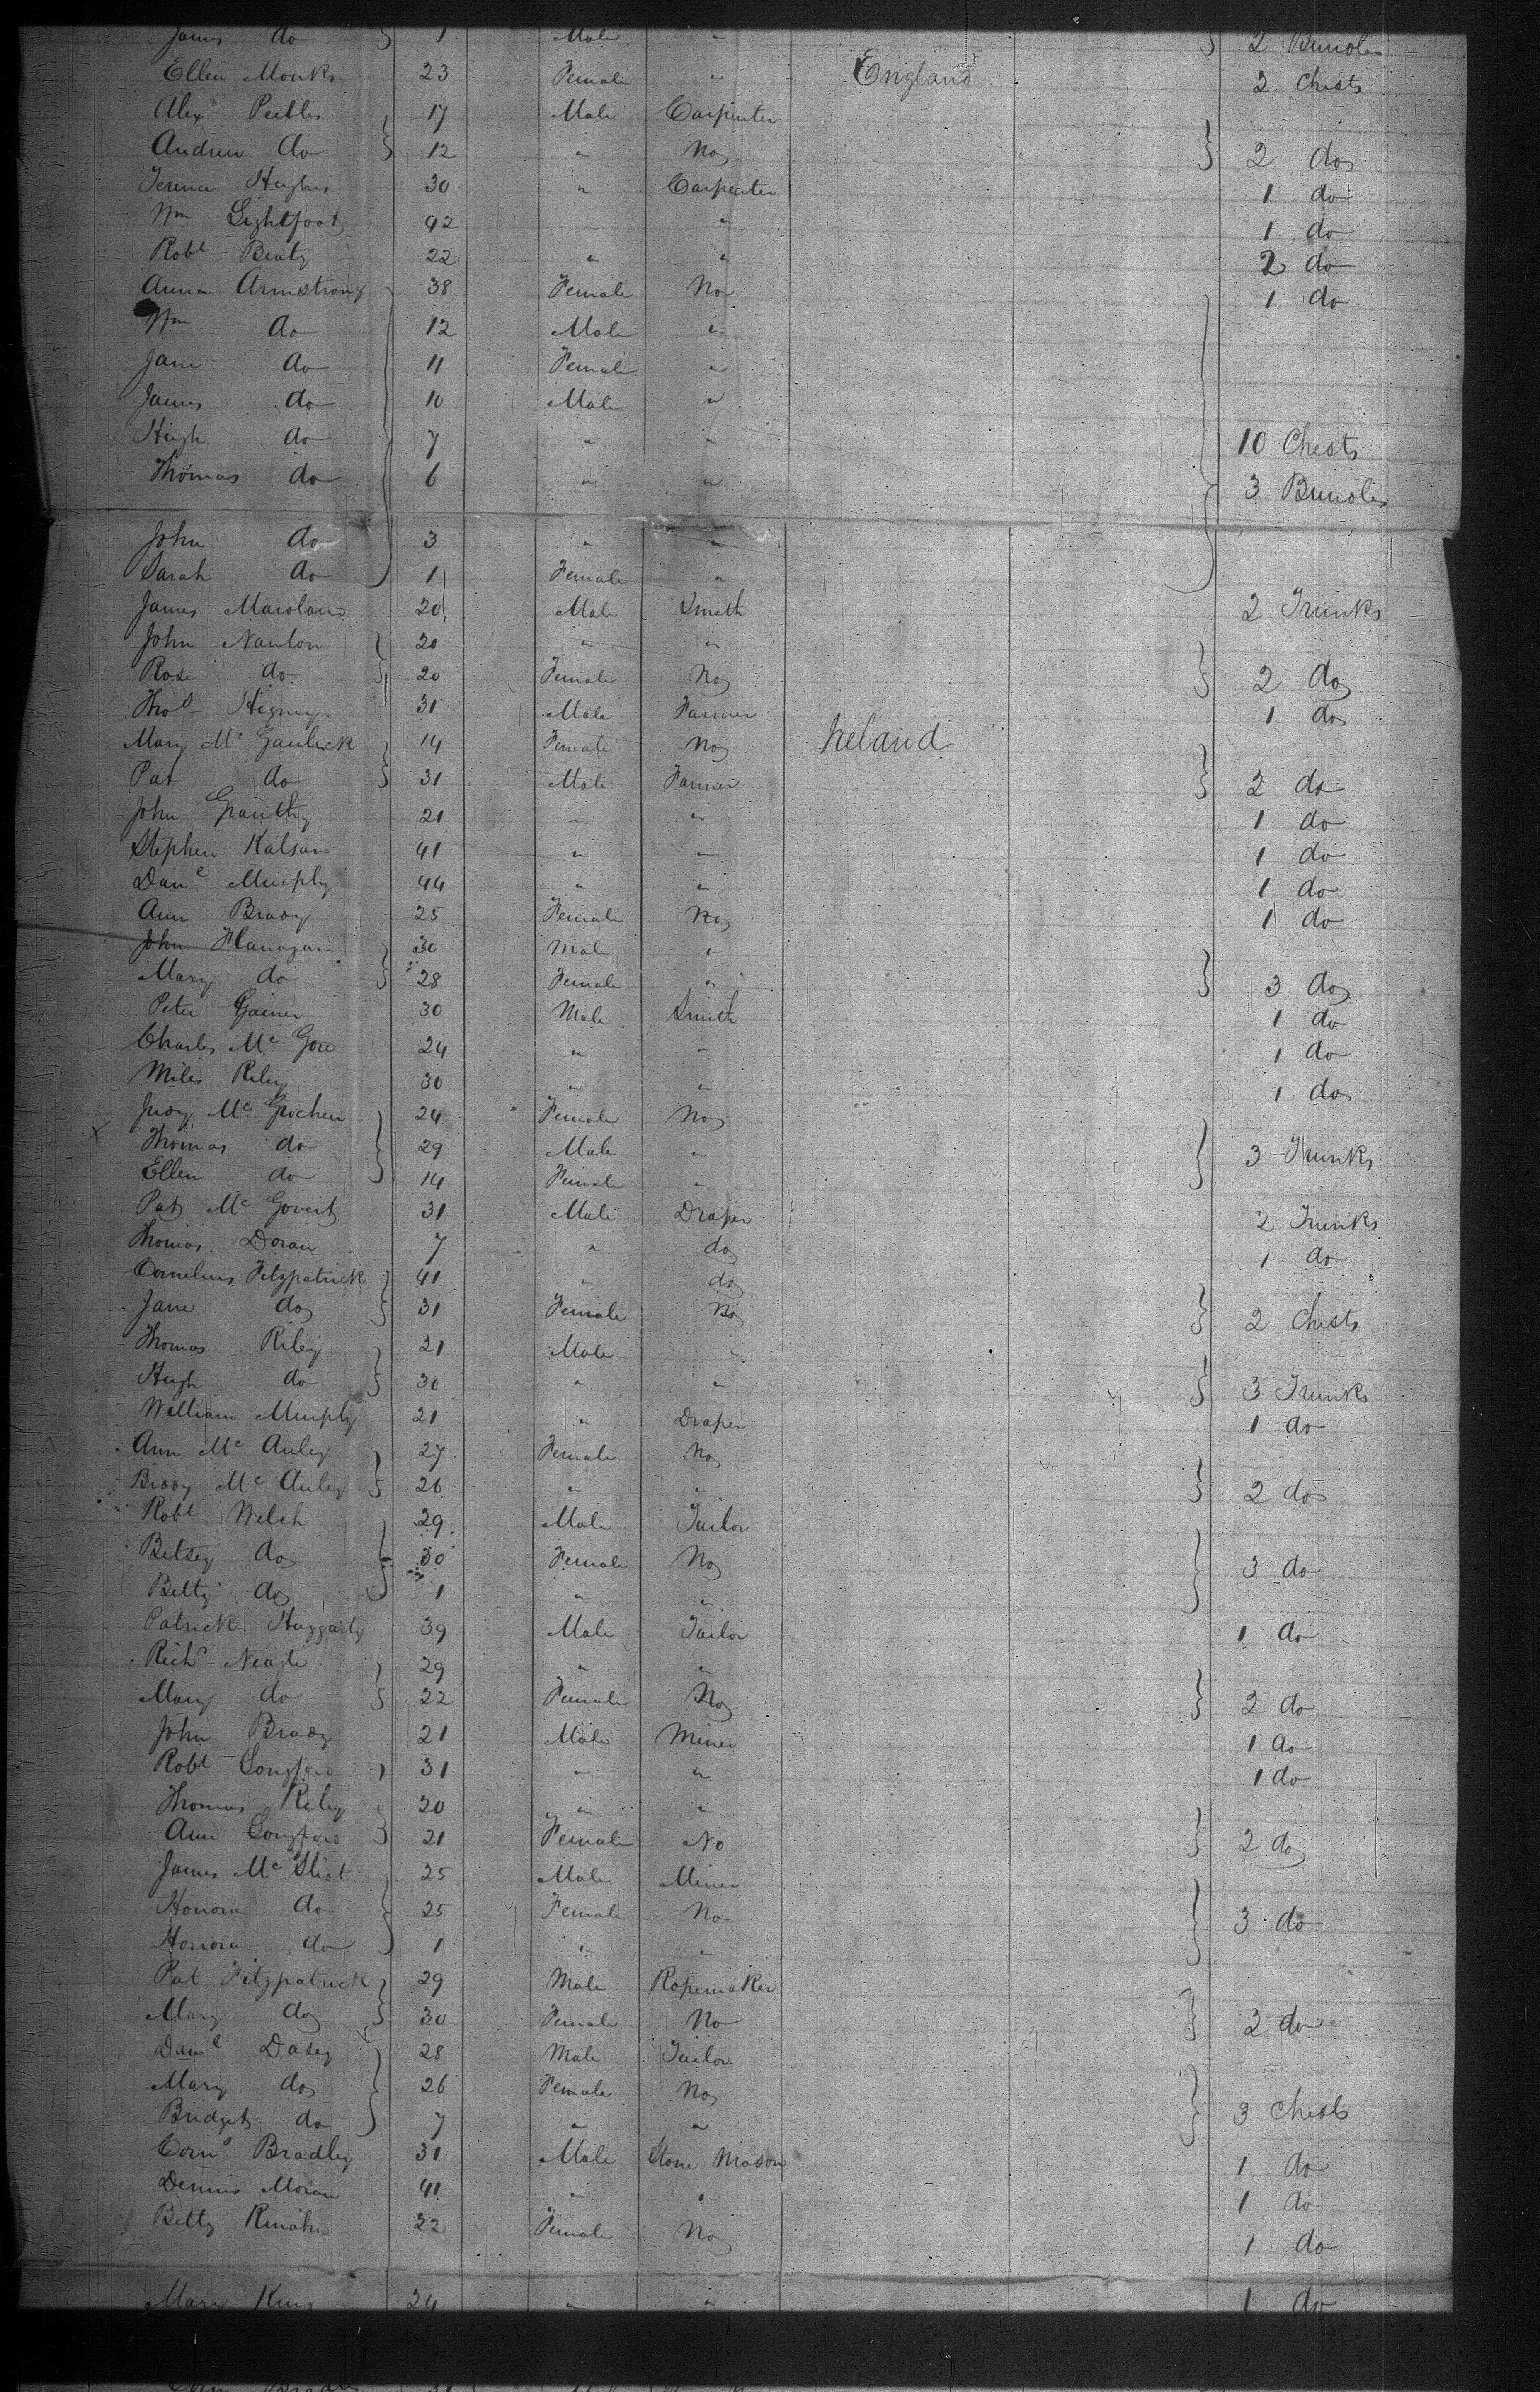 James do 1 Male " 2 Bundles
Ellen Monks 23 Female " England 2 Chests
Alexr Peebles 17 Male Carpenter
Andrew do 12 " No 2 do
Terence Hughes 30 " Carpenter 1 do
Wm Lightfoot 42 " " 1 do
Robt Beaty 22 " " 2 do
Anna Armstrong 38 Female No 1 do
Wm do 12 Male "
Jane do 11 Female "
James do 10 Male "
Hugh do 7 " " 10 Chests
Thomas do 6 " " 3 Bundles
John do 3 " "
Sarah do 1 Female "
James 20 Male Smith 2 Trunks
John Nanlon 20 " "
Rose do 20 Female No 2 do
Thos 31 Male Farmer 1 do
Mary Mc 14 Female No Ireland
Pat do 31 Male Farmer 2 do
John 21 " " 1 do
Stephen Kalsan 41 " " 1 do
Danl Murphy 44 " " 1 do
Ann Brady 25 Female No 1 do
John Flanagan 30 Male "
Mary do 28 Female " 3 do
Peter Gainer 30 Male Smith 1 do
Charles Mc 24 " " 1 do
Miles Riley 30 " " 1 do
Judy Mc 24 Female No
Thomas do 29 Male " 3 Trunks
Ellen do 14 Female "
Pat Mc Govert 31 Male Draper 2 Trunks
Thomas Doran 7 " do 1 do
Cornelius Fitzpatrick 41 " do
Jane do 31 Female No 2 Chests
Thomas Riley 21 Male "
Hugh do 30 " " 3 Trunks
William Murphy 21 " Draper 1 do
Ann Mc Auley 27 Female No
Biddy Mc Auley 26 " " 2 do
Robt Welch 29 Male Tailor
Betsey do 30 Female No 3 do
Betty do 1 " "
Patrick Haggarty 39 Male Tailor 1 do
Richd Neagle 29 " "
Mary do 22 Female No 2 do
John Brady 21 Male Miner 1 do
Robt Longford 31 " " 1 do
Thomas Riley 20 " "
Ann Longford 21 Female No 2 do
James Mc 25 Male Miner
Honora do 25 Female No 3 do
Honora do 1 " "
Pat Fitzpatrick 29 Male Ropemaker
Mary do 30 Female No 2 do
Danl Dasey 28 Male Tailor
Mary do 26 Female No
Bridget do 7 " " 3 Chests
Corns Bradley 31 Male Stone Mason 1 do
Dennis Moran 41 " " 1 do
Betty 22 Female No 1 do
Mary King 24 " " 1 do